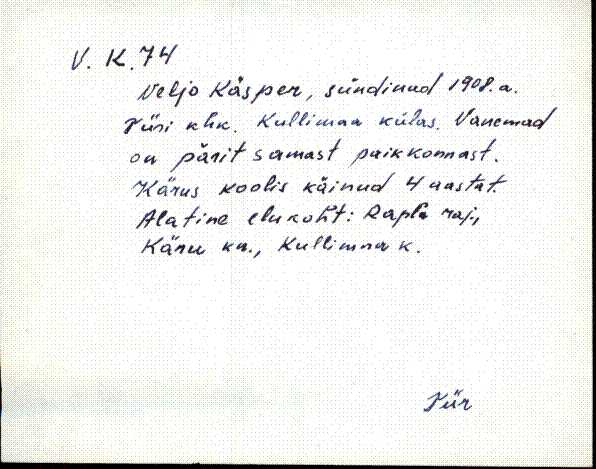 V. K. 74
Veljo Käsper, sündinud 1908. a.
Türi khk. Kullimaa külas. Vanemad
on pärit samast paikkonnast.
Kärus koolis käinud 4 aastat.
Alatine elukoht: Rapla raj.,
Käru kn., Kullimaa k.
Tür